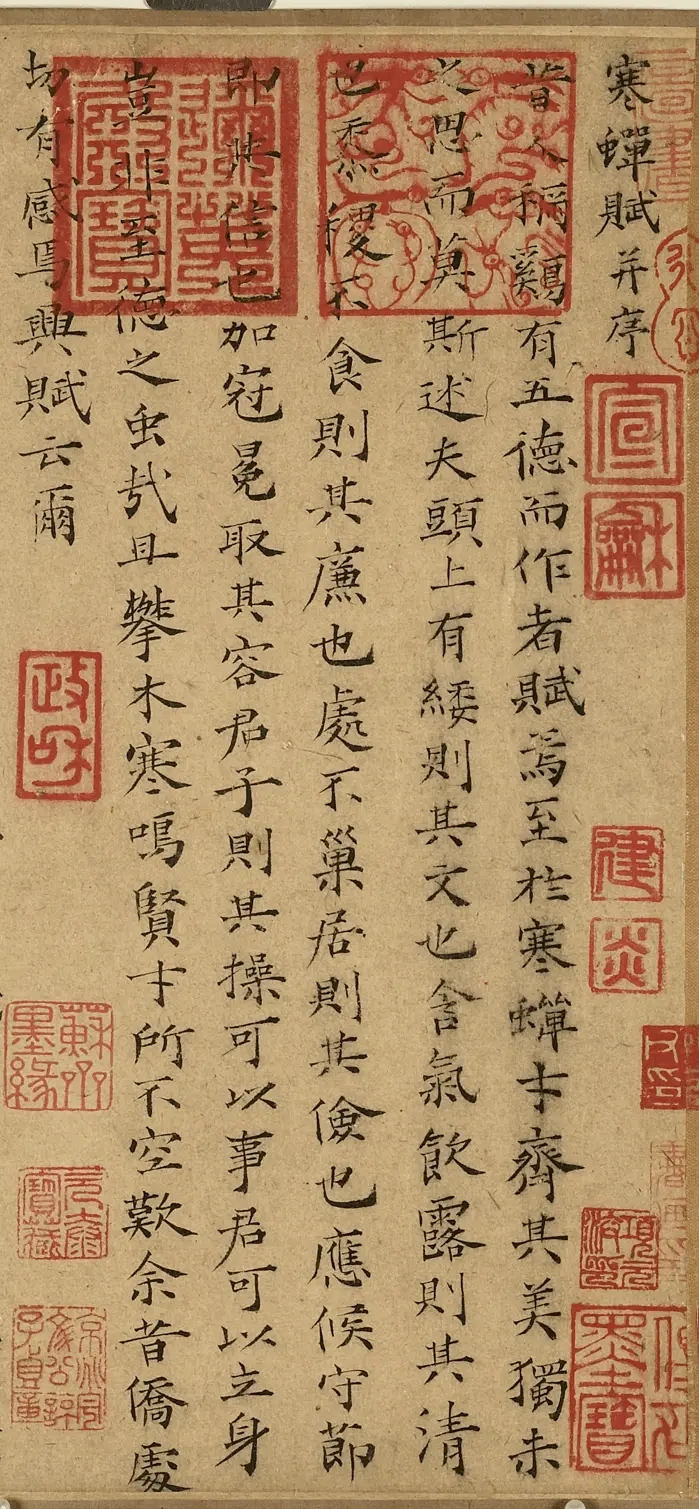 寒蟬賦并序
宣
龢
建
炎
昔人稱鷄有五德而作者賦焉至於寒蟬才齊其美獨未
之思而莫斯述夫頭上有緌則其文也含氣飲露則其清
也黍稷不食則其廉也處不巢居則其儉也應候守節
即其信也加冠冕取其容君子則其操可以事君可以立身
豈非至德之虫哉且攀木寒鳴賢才所不空歎余昔僑處
切有感焉興賦云爾
政和
蘇齋墨緣